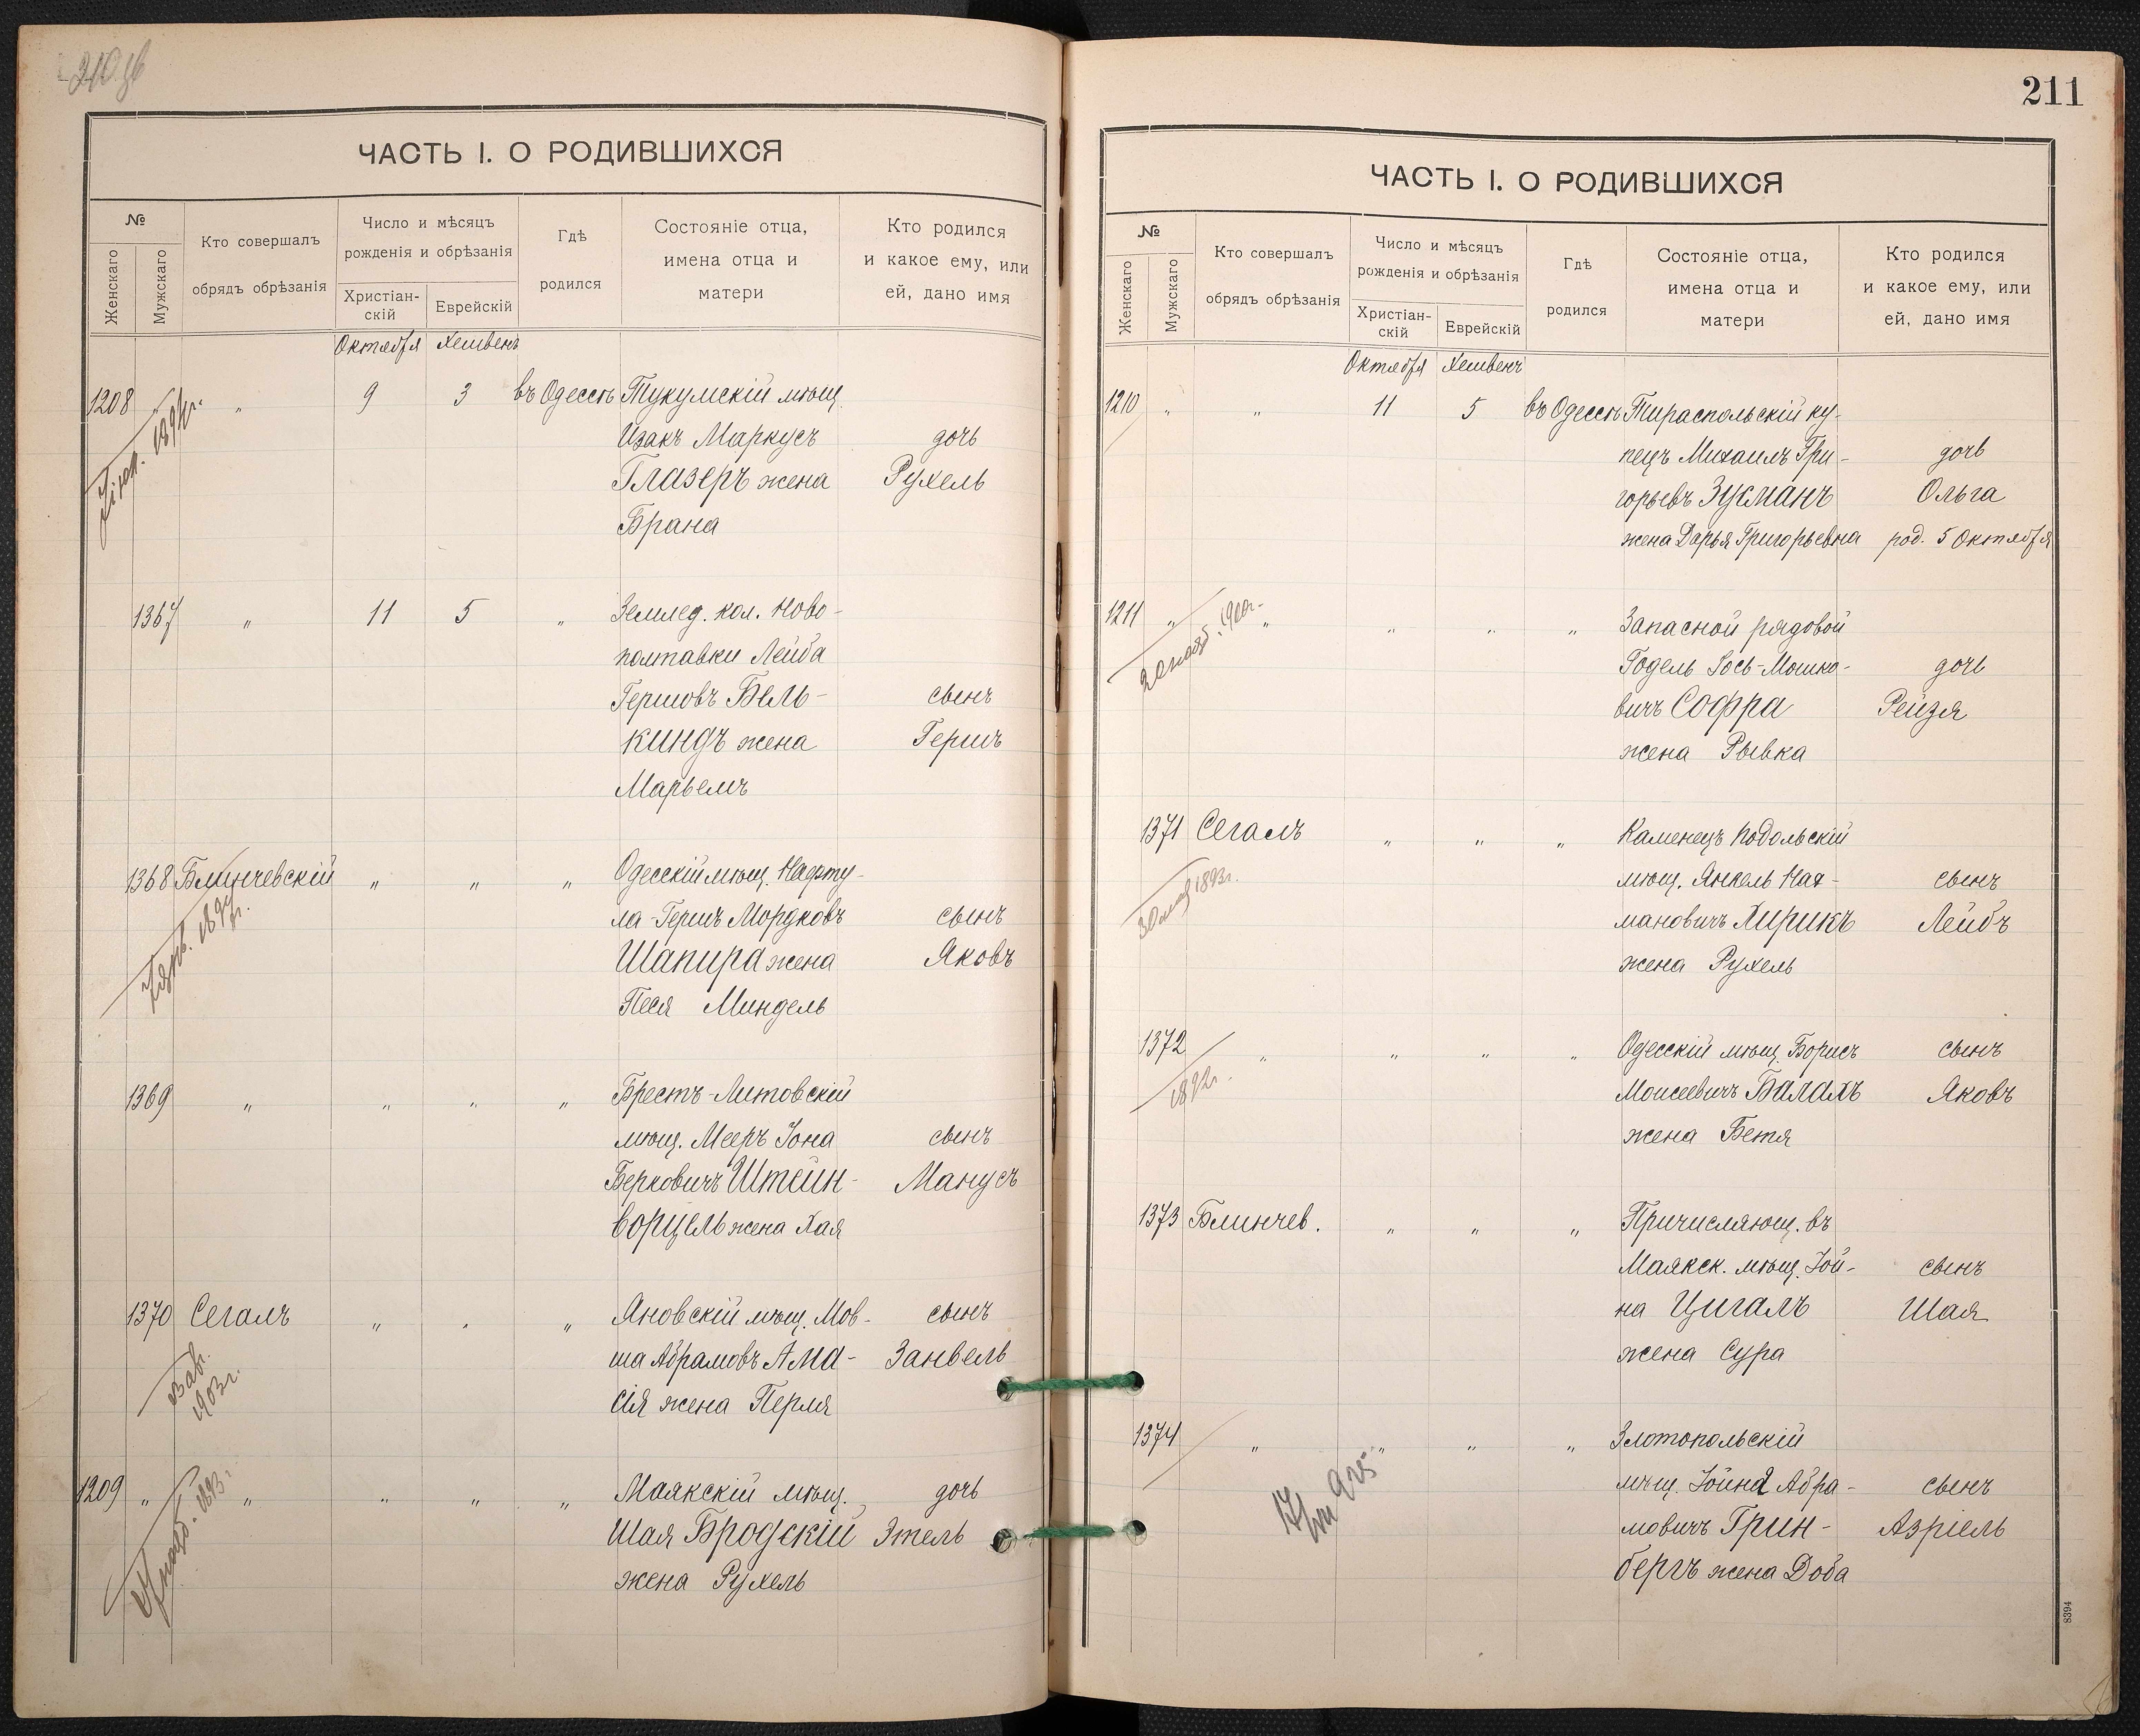 210 об
ЧАСТЬ I. О РОДИВШИХСЯ
№
Женскаго
Мужскаго
Кто совершалъ
обрядъ обрѣзанія
Число и мѣсяцъ
рожденія и обрѣзанія
Христіан-
скій
Еврейскій
Гдѣ
родился
Состояніе отца,
имена отца и
матери
Кто родился
и какое ему, или
ей, дано имя
Октября Хешвенъ
1208 „ 9 3 въ Одессѣ Тукумскій мѣщ.
Изакъ Маркусъ дочь
Глазеръ жена Рухель
Брана
1894г.
1367 „ 11 5 „ Землед. кол. Ново-
полтавки Лейба
Гершовъ Бель- сынъ
киндъ жена Гершъ
Марьемъ
1368 Блинчевскій „ „ „ Одесскій мѣщ. Нафту-
ла-Гершъ Мордковъ сынъ
Шапира жена Яковъ
Песя Миндель
1897г.
1369 „ „ „ „ Брестъ-Литовскій
мѣщ. Мееръ Іона сынъ
Берковичъ Штейн- Манусъ
ворцель жена Хая
1370 Сегалъ „ „ „ Яновскій мѣщ. Мов- сынъ
ша Абрамовъ Ама- Занвель
сія жена Перля
3 ав.
1903г.
1209 „ „ „ „ „ Маякскій мѣщ. дочь
Шая Бродскій Этель
жена Рухель
1893г.
211
ЧАСТЬ I. О РОДИВШИХСЯ
№
Женскаго
Мужскаго
Кто совершалъ
обрядъ обрѣзанія
Число и мѣсяцъ
рожденія и обрѣзанія
Христіан-
скій
Еврейскій
Гдѣ
родился
Состояніе отца,
имена отца и
матери
Кто родился
и какое ему, или
ей, дано имя
Октября Хешвенъ
1210 „ „ 11 5 въ Одессѣ Тираспольскій ку-
пецъ Михаилъ Гри- дочь
горьевъ Зусманъ Ольга
жена Дарья Григорьевна род. 5 Октября
1211 „ „ „ „ „ Запасной рядовой
Годель Іось-Мошко- дочь
вичъ Софра Рейзя
жена Рывка
1900г.
1371 Сегалъ „ „ „ Каменецъ Подольскій
мѣщ. Янкель Нах- сынъ
мановичъ Хирикъ Лейбъ
жена Рухель
1893г.
1372 „ „ „ „ Одесскій мѣщ. Борисъ сынъ
Моисеевичъ Балахъ Яковъ
жена Бетя
1892г.
1373 Блинчев. „ „ „ Причисляющ. въ
Маякск. мѣщ. Іой- сынъ
на Цигалъ Шая
жена Сура
1374 „ „ „ „ Злотопольскій
мѣщ. Іойна Абра- сынъ
мовичъ Грин- Азріель
бергъ жена Доба
8394